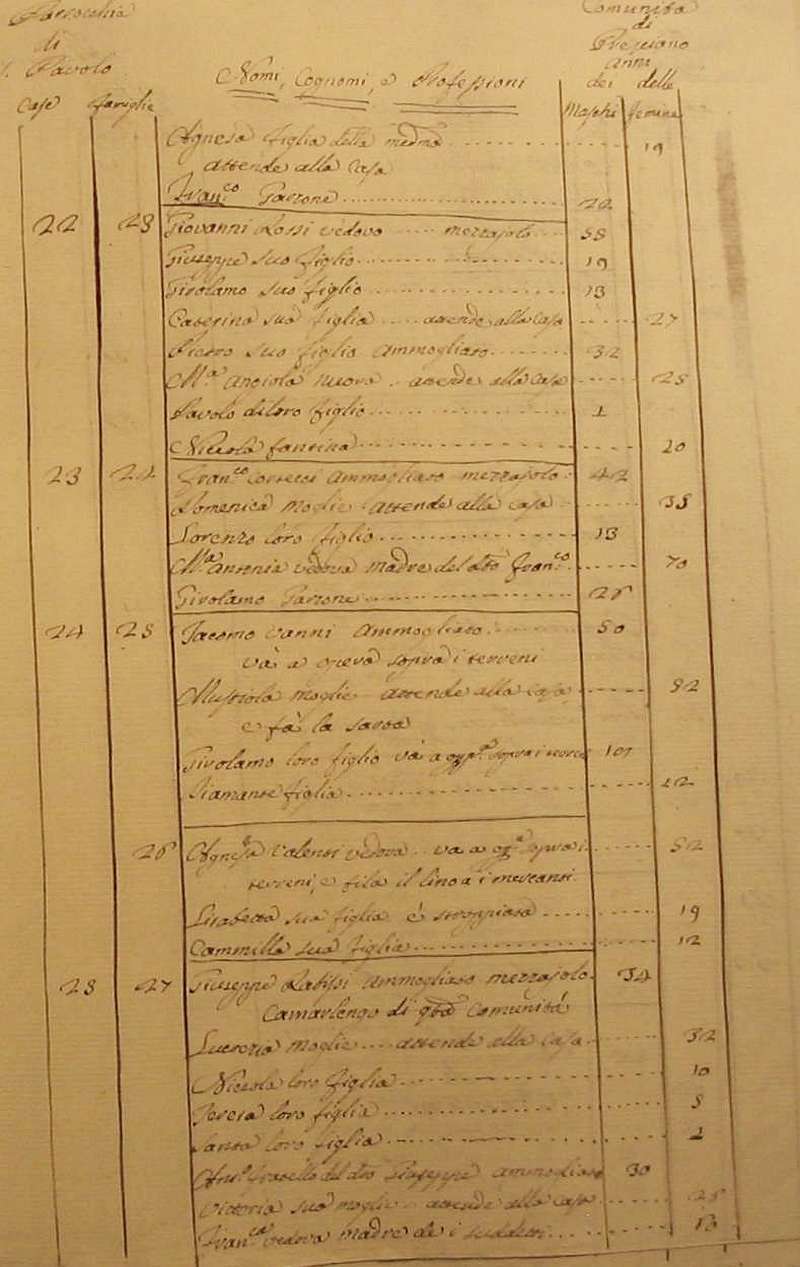 Parrocchia
di
Pavolo
Comunità
di
Presciano
anni
Case famiglie Nomi, Cognomi, e Professioni dei Maschi delle femine
Agnesa figlia della medma 19
attende alla Casa
Franco Garzone 22
22 23 Giovanni Rossi vedovo mezzajolo 58
Giuseppe suo figlio 19
Girolamo suo figlio 13
Caterina sua figlia attende alla Casa 27
Pietro suo figlio Ammogliato 32
Ma Angiola nuora attende alla Casa 25
Pavolo di loro figlio 1
Niccola fantina 20
23 24 Franco Ammogliato mezzajolo 42
Domenica Moglie attende alla casa 38
Lorenzo loro figlio 13
Ma Antonia vedova Madre del dto Franco 70
Girolamo Garzone
24 25 Jacomo Vanni Ammogliato 50
và a opera sopra i terreni
Mustiola moglie attende alla casa 52
e fà la sarta
Girolamo loro figlio và a sopra i terreni
Diamante figlia 12
26 Agnesa Valenti vedova va a opa sopra i 52
terreni, e fila il lino a i mercanti
Lisabetta sua figlia è stroppiata 19
Cammilla sua figlia 12
25 27 Giuseppe Ammogliato mezzajolo 34
Camarlengo di qta Comunità
Lucrezia Moglie attende alla Casa 32
Niccola loro figlia 10
Teresa loro figlia 5
Santa loro figlia 1
fratello del dto Giuseppe ammogliato 30
Vittoria sua moglie attende alla casa
vedova madre de i